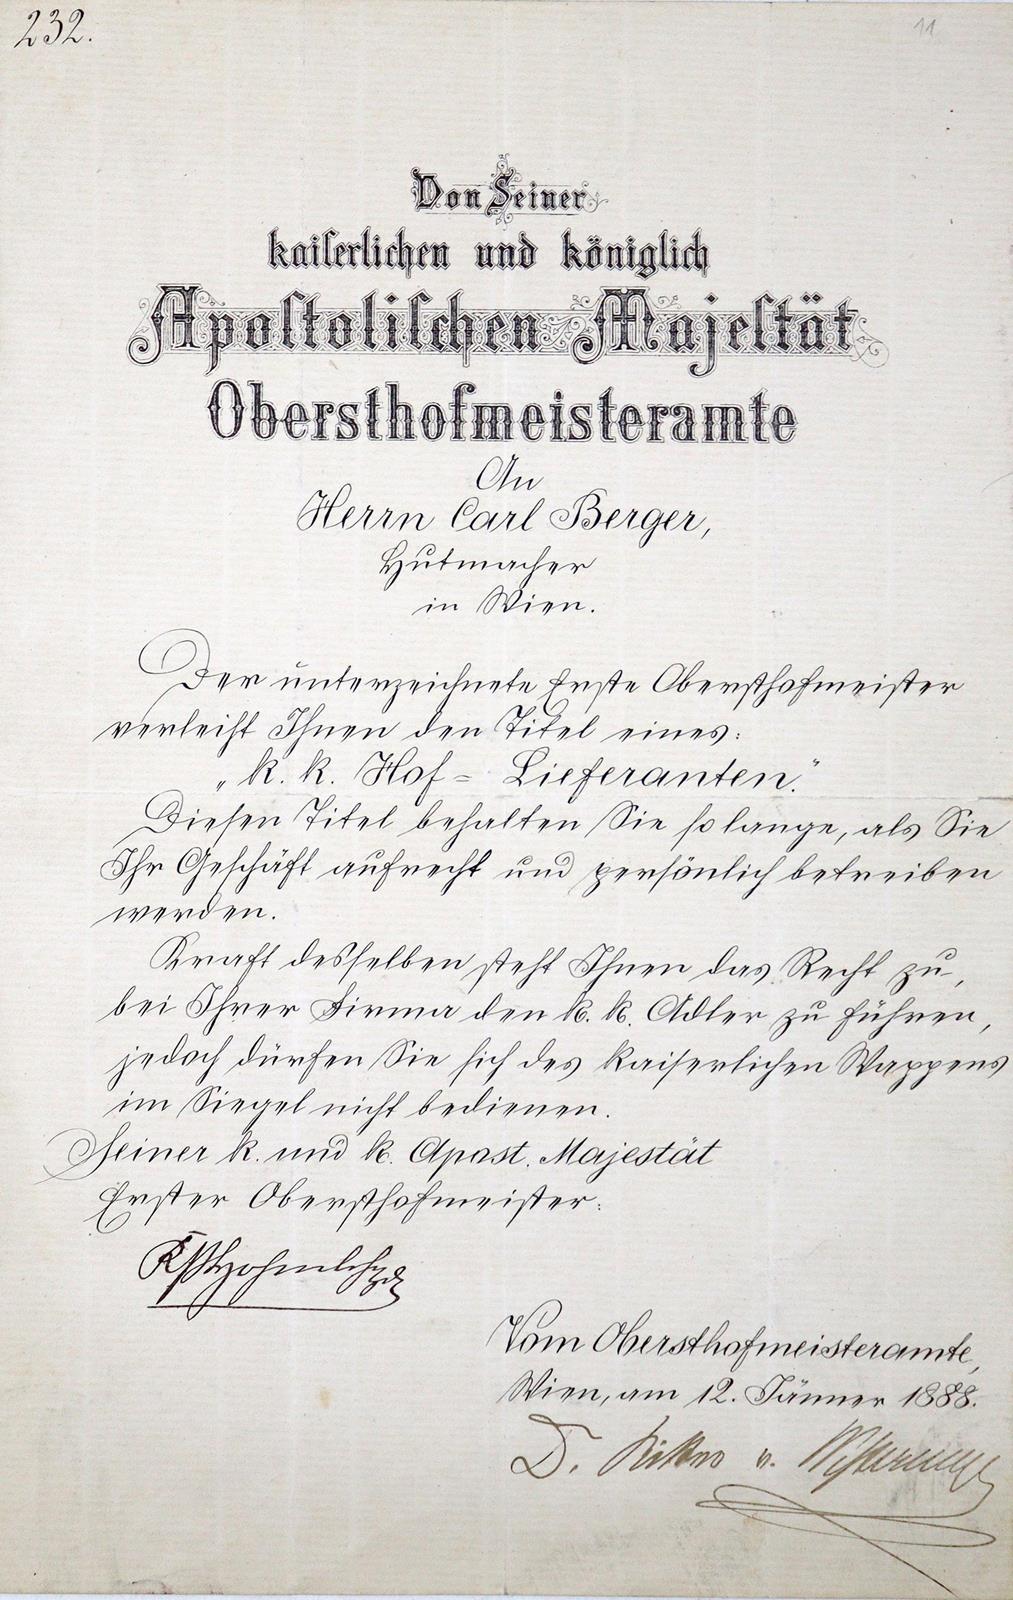 232.
11
Von Seiner
kaiserlichen und königlich
Apostolischen Majestät
Obersthofmeisteramte
An
Herrn Carl Berger,
Hutmacher
in Wien.
Der unterzeichnete Erste Obersthofmeister
verleiht Ihnen den Titel eines:
„k. k. Hof- Lieferanten."
Diesen Titel behalten Sie so lange, als Sie
Ihr Geschäft aufrecht und persönlich betreiben
werden.
Kraft desselben steht Ihnen das Recht zu,
bei Ihrer Firma den k. k. Adler zu führen,
jedoch dürfen Sie sich des kaiserlichen Wappens
im Siegel nicht bedienen.
Seiner k. und k. Apost. Majestät
Erster Obersthofmeister:
Hohenlohe
Vom Obersthofmeisteramte,
Wien, am 12. Jänner 1888.
D. v.